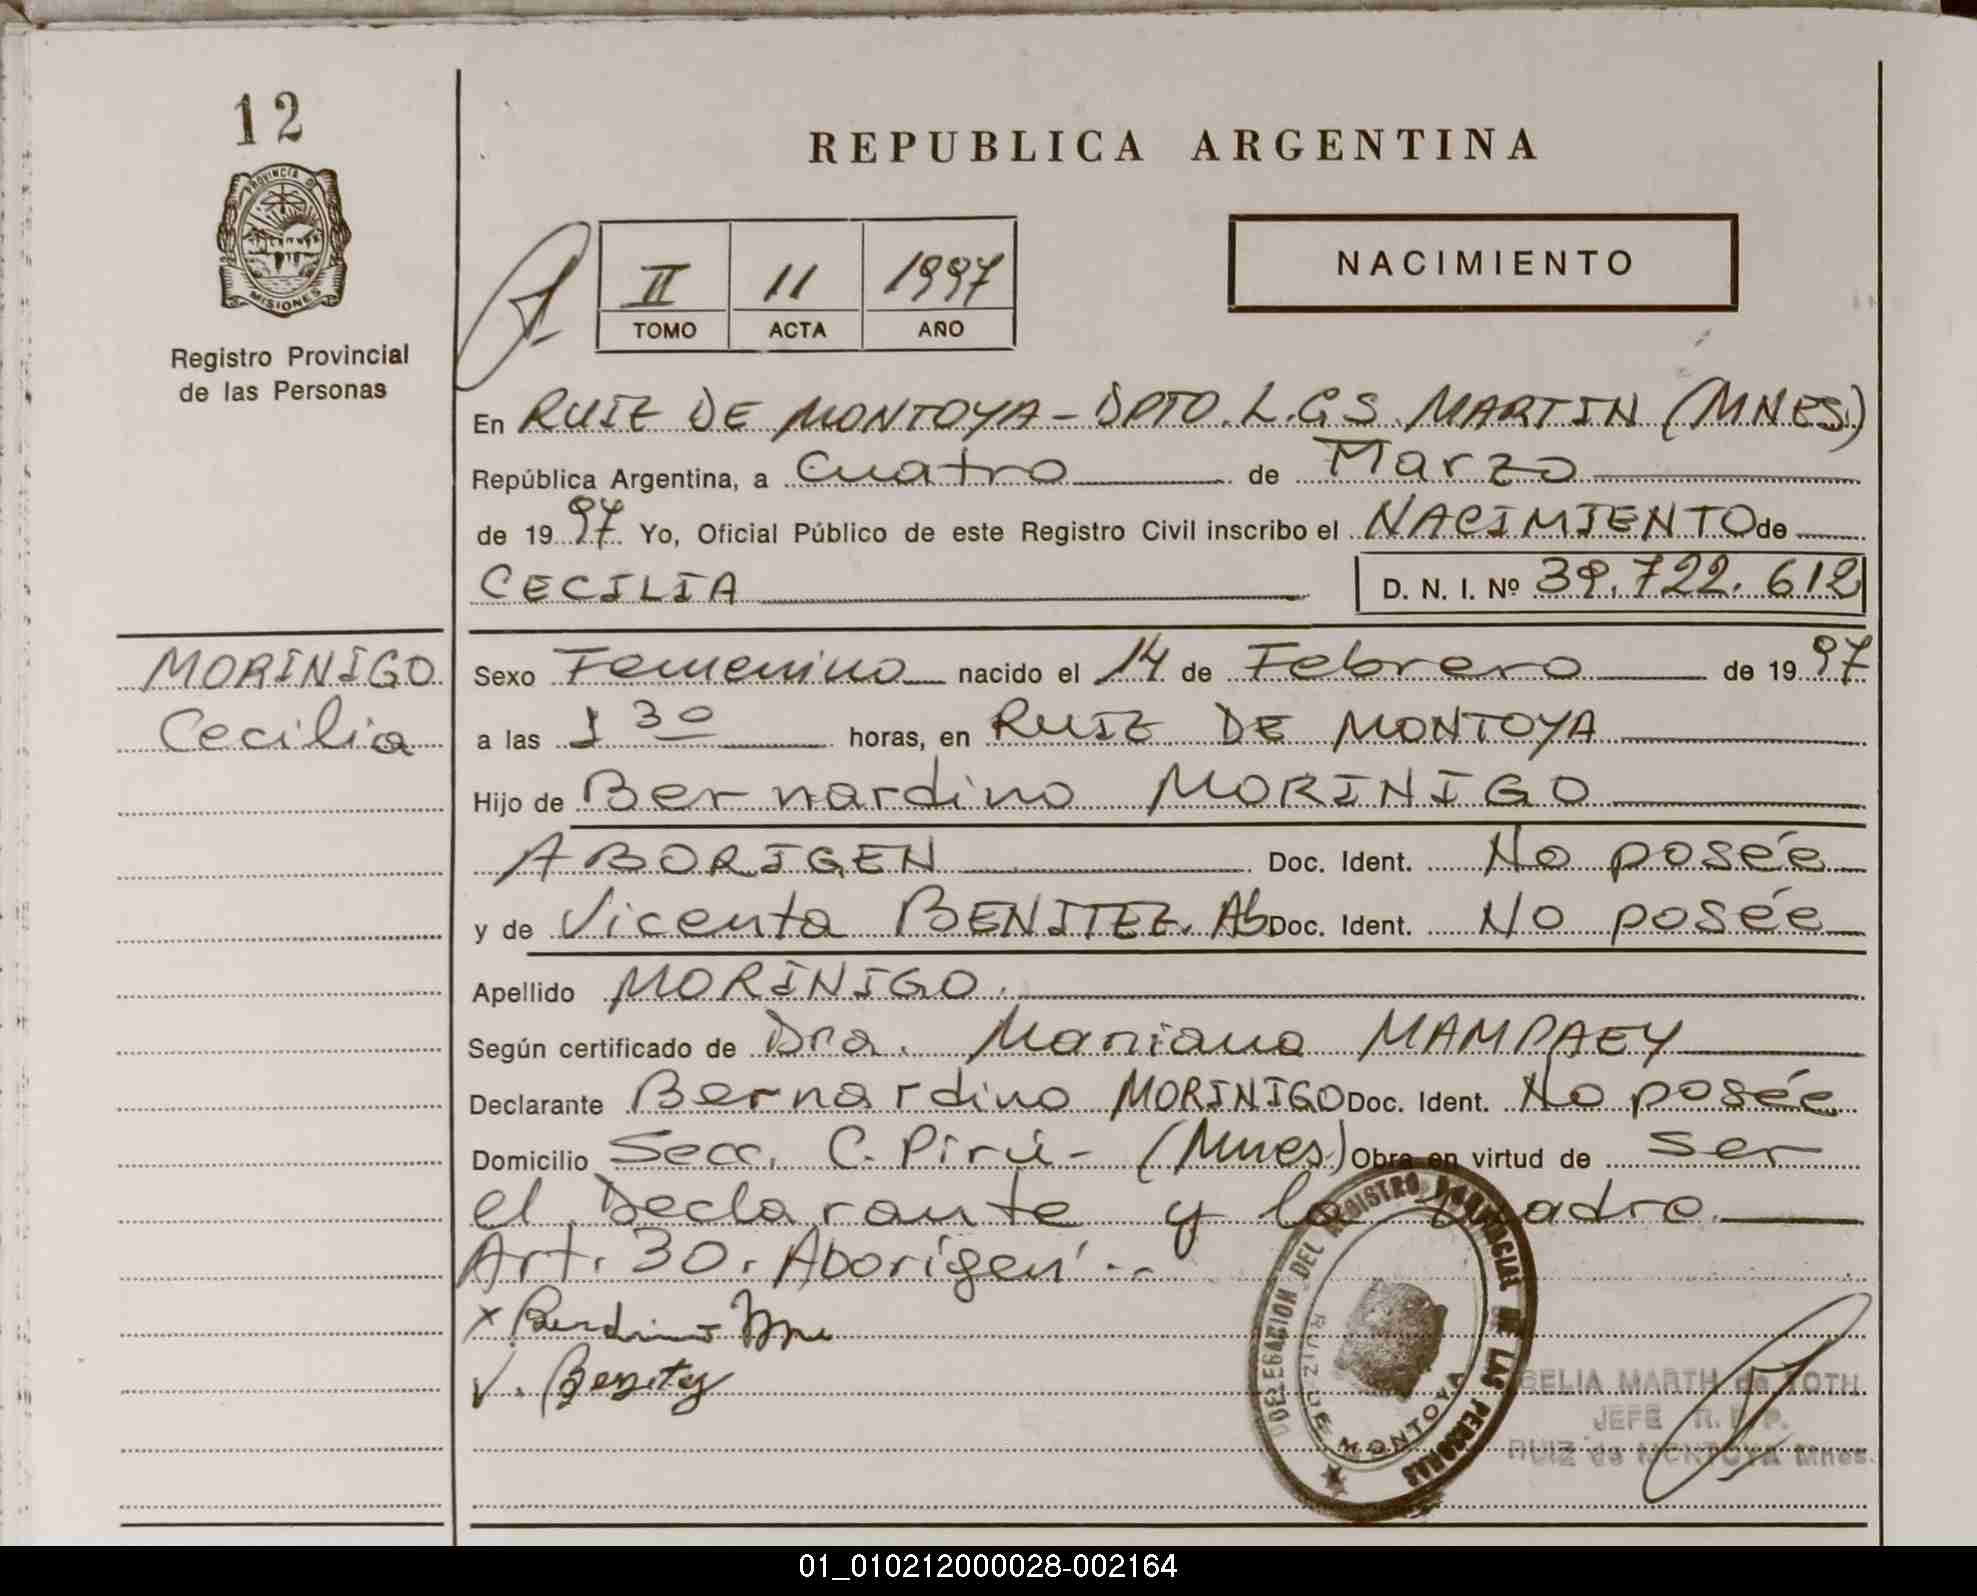 12
PROVINCIA DE
MISIONES
Registro Provincial
de las Personas
REPUBLICA ARGENTINA
II 11 1997
TOMO ACTA AÑO
NACIMIENTO
En RUIZ DE MONTOYA - DPTO. L. G. S. MARTIN (MNES.)
República Argentina, a Cuatro de Marzo
de 19 97 Yo, Oficial Público de este Registro Civil inscribo el NACIMIENTO de
CECILIA D. N. I. Nº 39.722.612
MORINIGO
Cecilia
Sexo Femenino nacido el 14 de Febrero de 19 97
a las 1 30 horas, en RUIZ DE MONTOYA
Hijo de Bernardino MORINIGO
ABORIGEN Doc. Ident. No posée
y de Vicenta BENITEZ. Ab Doc. Ident. No posée
Apellido MORINIGO.
Según certificado de Dra. Mariana MAMPAEY
Declarante Bernardino MORINIGO Doc. Ident. No posée
Domicilio Secc. C. Pirú - (Mnes) Obra en virtud de ser
el Declarante y la Madre.
Art. 30. Aborigen
V. Benitez
DELEGACION DEL REGISTRO PROVINCIAL DE LAS PERSONAS
RUIZ DE MONTOYA
MARTH de TOTH
JEFE R. P. P.
RUIZ de MONTOYA Mnes.
01_010212000028-002164